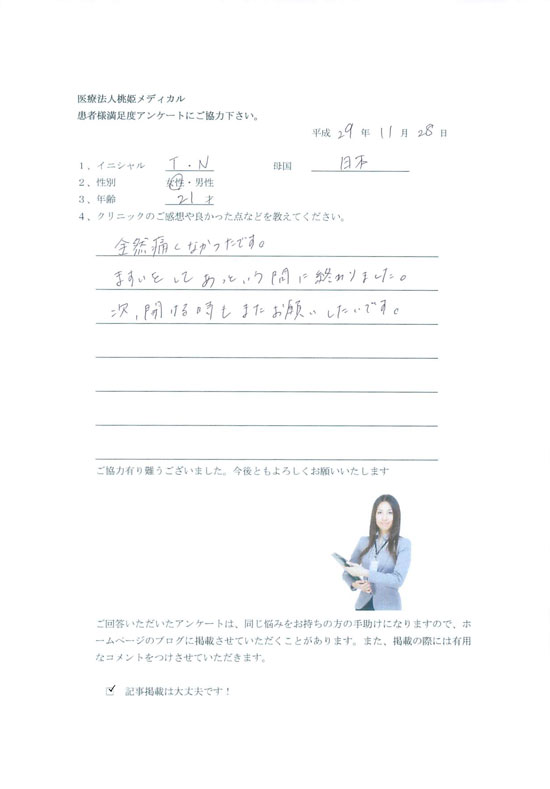 医療法人桃姫メディカル
患者様満足度アンケートにご協力下さい。
平成 29 年 11 月 28 日
1、イニシャル T.N 母国 日本
2、性別 女性・男性
3、年齢 21才
4、クリニックのご感想や良かった点などを教えてください。
全然痛くなかったです。
ますいをしてあっという間に終わりました。
次、開ける時もまたお願いしたいです。
ご協力有り難うございました。今後ともよろしくお願いいたします
ご回答いただいたアンケートは、同じ悩みをお持ちの方の手助けになりますので、ホ
ームページのブログに掲載させていただくことがあります。また、掲載の際には有用
なコメントをつけさせていただきます。
記事掲載は大丈夫です！